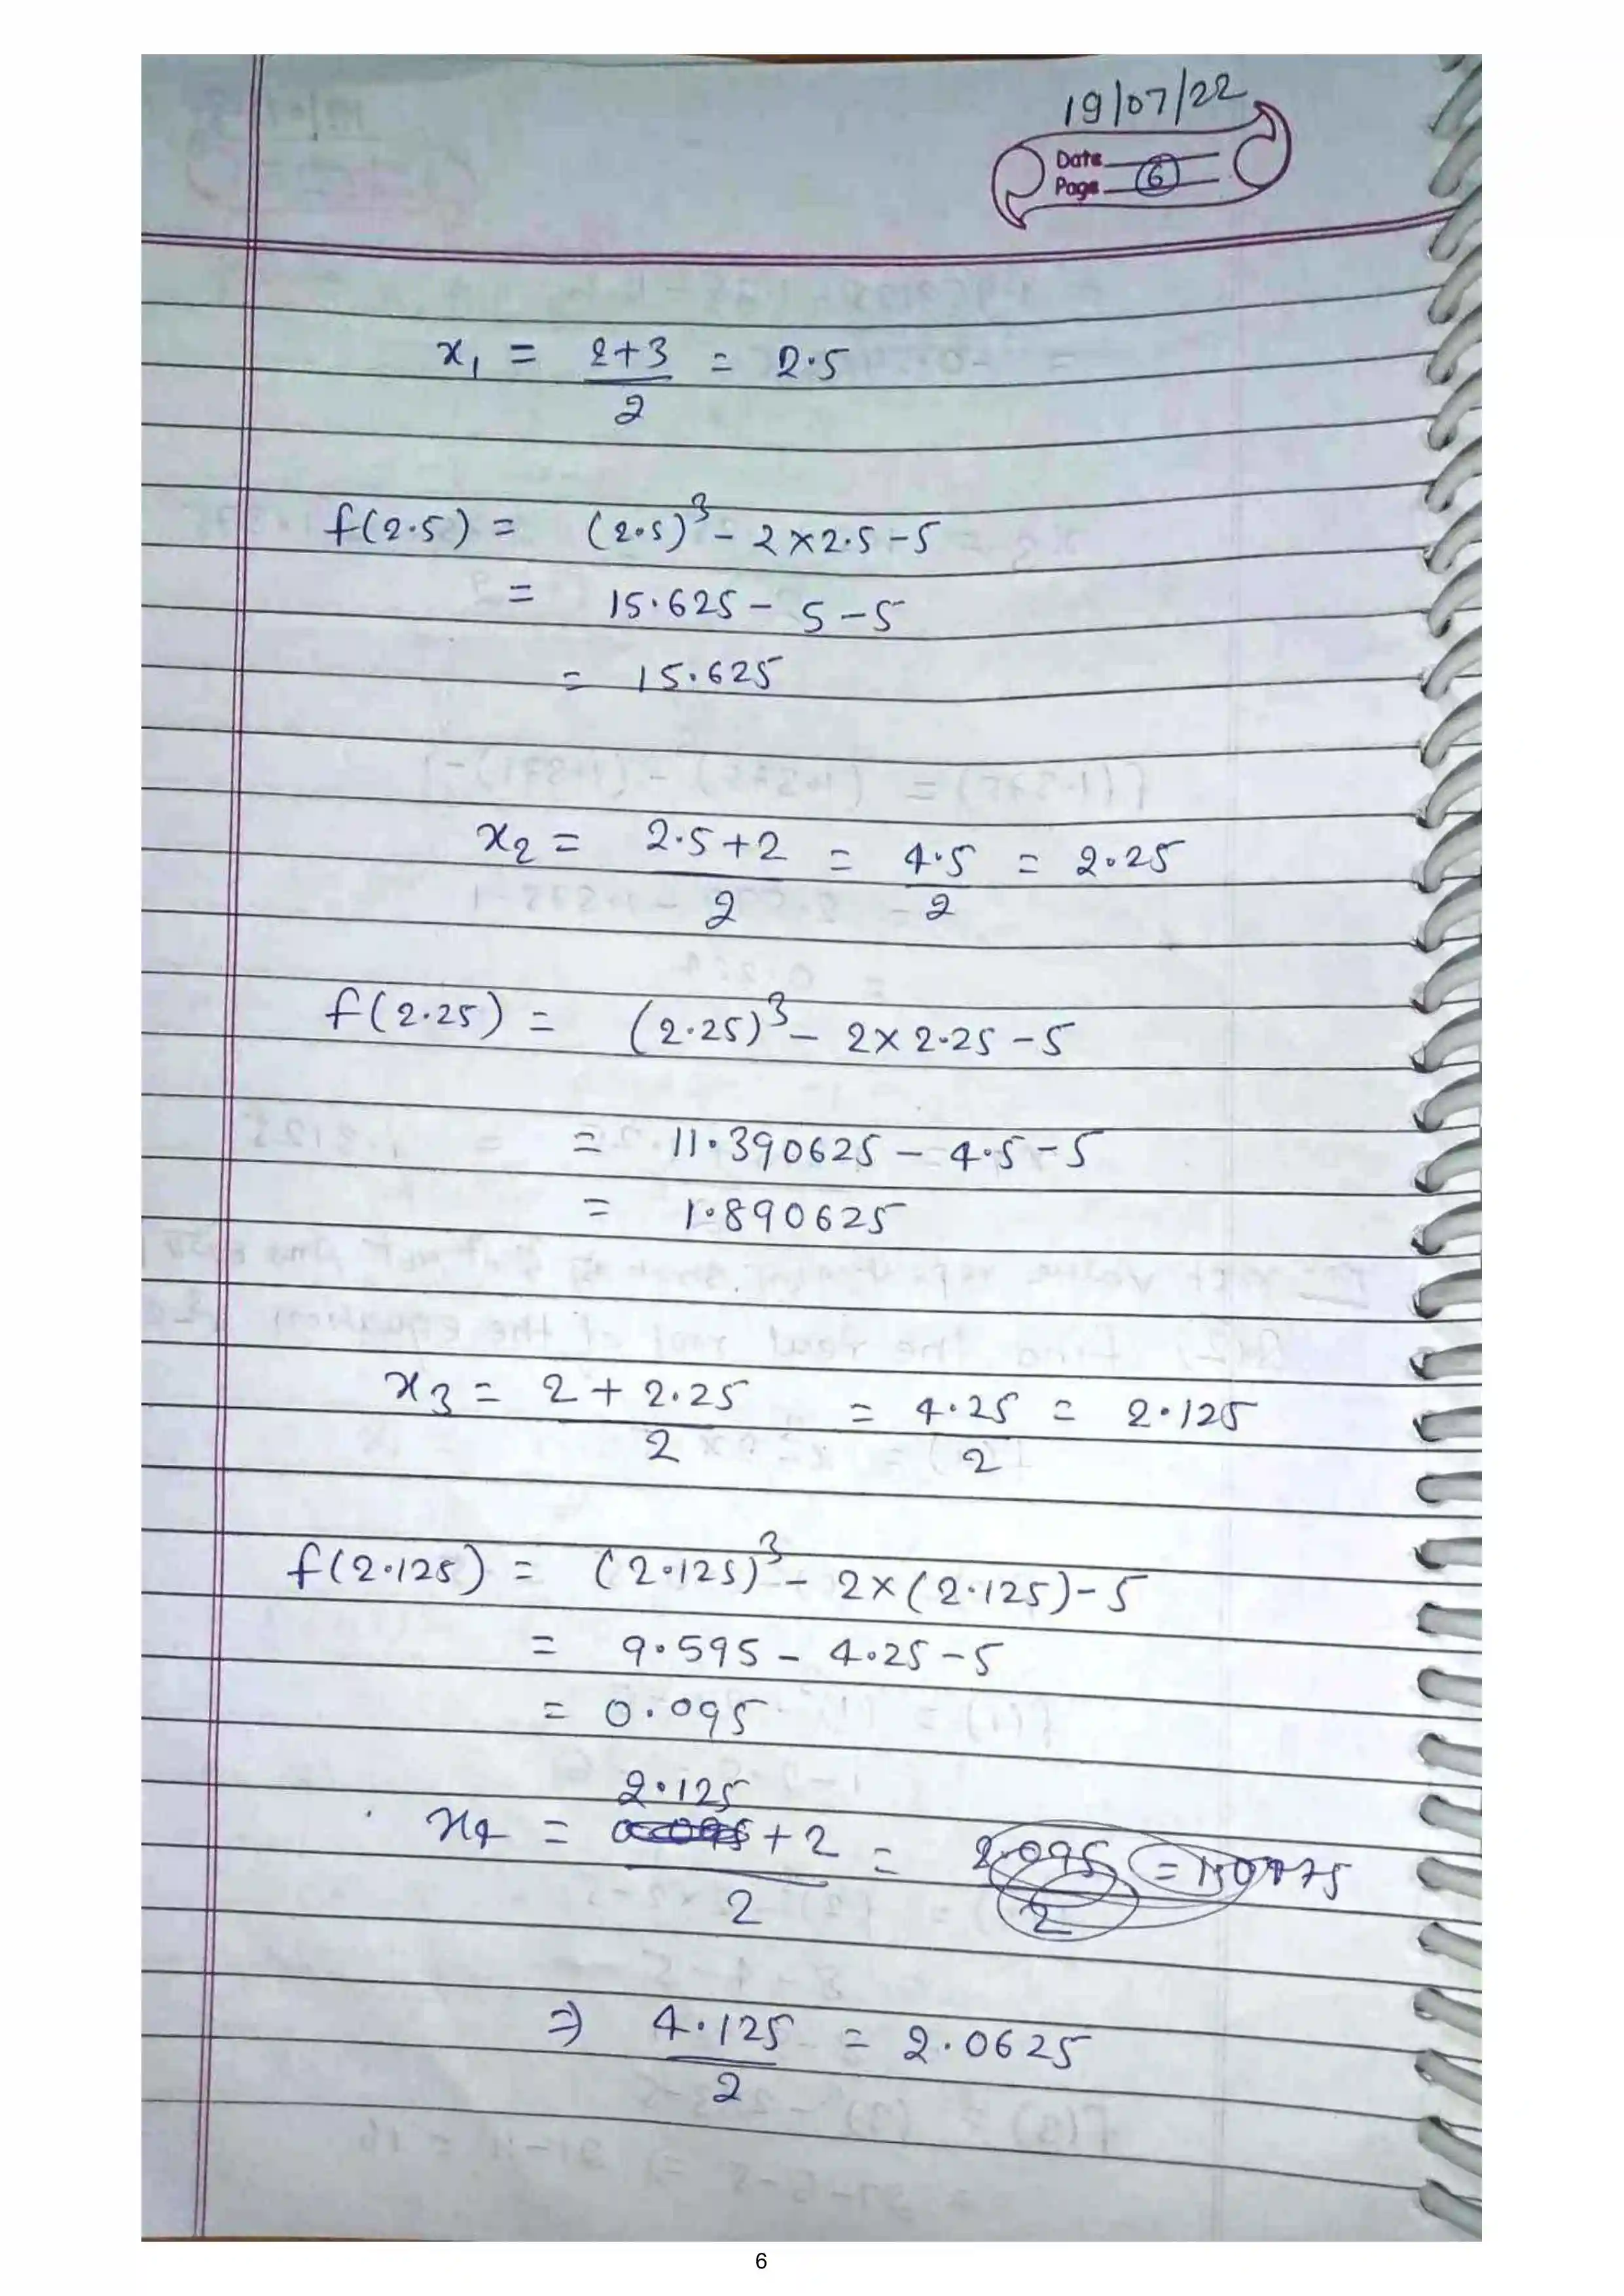 19/07/22
Date
Page 6
x₁ = 2+3/2 = 2.5
f(2.5) = (2.5)³ - 2×2.5-5
= 15.625 - 5-5
= 15.625
x₂ = 2.5+2/2 = 4.5/2 = 2.25
f(2.25) = (2.25)³ - 2×2.25-5
= 11.390625 - 4.5-5
= 1.890625
x₃ = 2+2.25/2 = 4.25/2 = 2.125
f(2.125) = (2.125)³ - 2×(2.125)-5
= 9.595 - 4.25-5
= 0.095
2.125
x₄ = +2/2 = 2.095/2
⇒ 4.125/2 = 2.0625
6